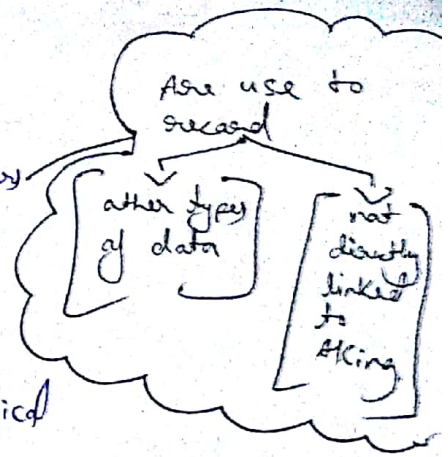 Are use to
record
other types
of data
not
directly
linked
to
A/Cing
ical